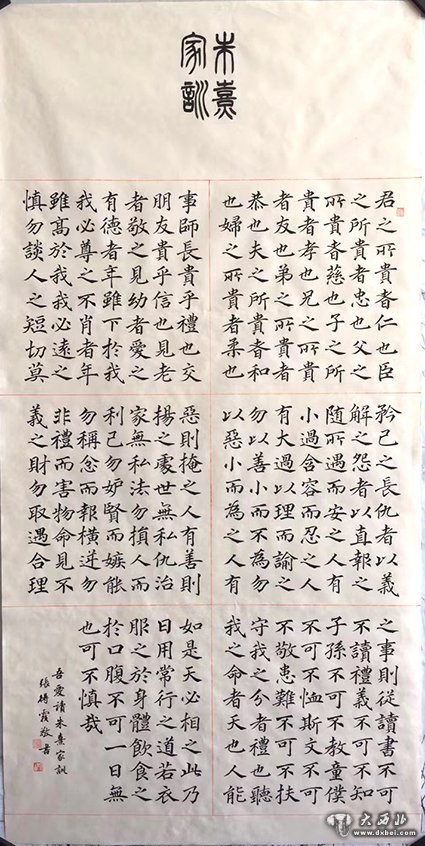 朱熹
家訓
君之所貴者仁也臣
之所貴者忠也父之
所貴者慈也子之所
貴者孝也兄之所貴
者友也弟之所貴者
恭也夫之所貴者和
也婦之所貴者柔也
事師長貴乎禮也交
朋友貴乎信也見老
者敬之見幼者愛之
有德者年雖下於我
我必尊之不肖者年
雖高於我我必遠之
慎勿談人之短切莫
矜己之長仇者以義
解之怨者以直報之
隨所遇而安之人有
小過含容而忍之人
有大過以理而諭之
勿以善小而不為勿
以惡小而為之人有
惡則掩之人有善則
揚之處世無私仇治
家無私法勿損人而
利己勿妒賢而嫉能
勿稱忿而報橫逆勿
非禮而害物命見不
義之財勿取遇合理
之事則從讀書不可
不讀禮義不可不知
子孫不可不教童僕
不可不恤斯文不可
不敬患難不可不扶
守我之分者禮也聽
我之命者天也人能
如是天必相之此乃
日用常行之道若衣
服之於身體飲食之
於口腹不可一日無
也可不慎哉
吾愛讀朱熹家訓
張霞敬書
大西北
www.dxbei.com